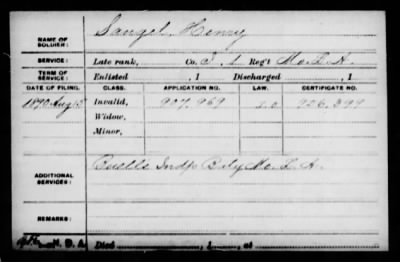 NAME OF SOLDIER: Sangel, Henry
SERVICE: Late rank, Co. I, 1 Reg't Mo. L. A.
TERM OF SERVICE: Enlisted , 1 Discharged , 1
DATE OF FILING. CLASS. APPLICATION NO. LAW. CERTIFICATE NO.
1890 Aug 15 Invalid, 907,969
Widow,
Minor,
ADDITIONAL SERVICES: Indp Baty Mo. L. A.
REMARKS:
Died , 1 , at